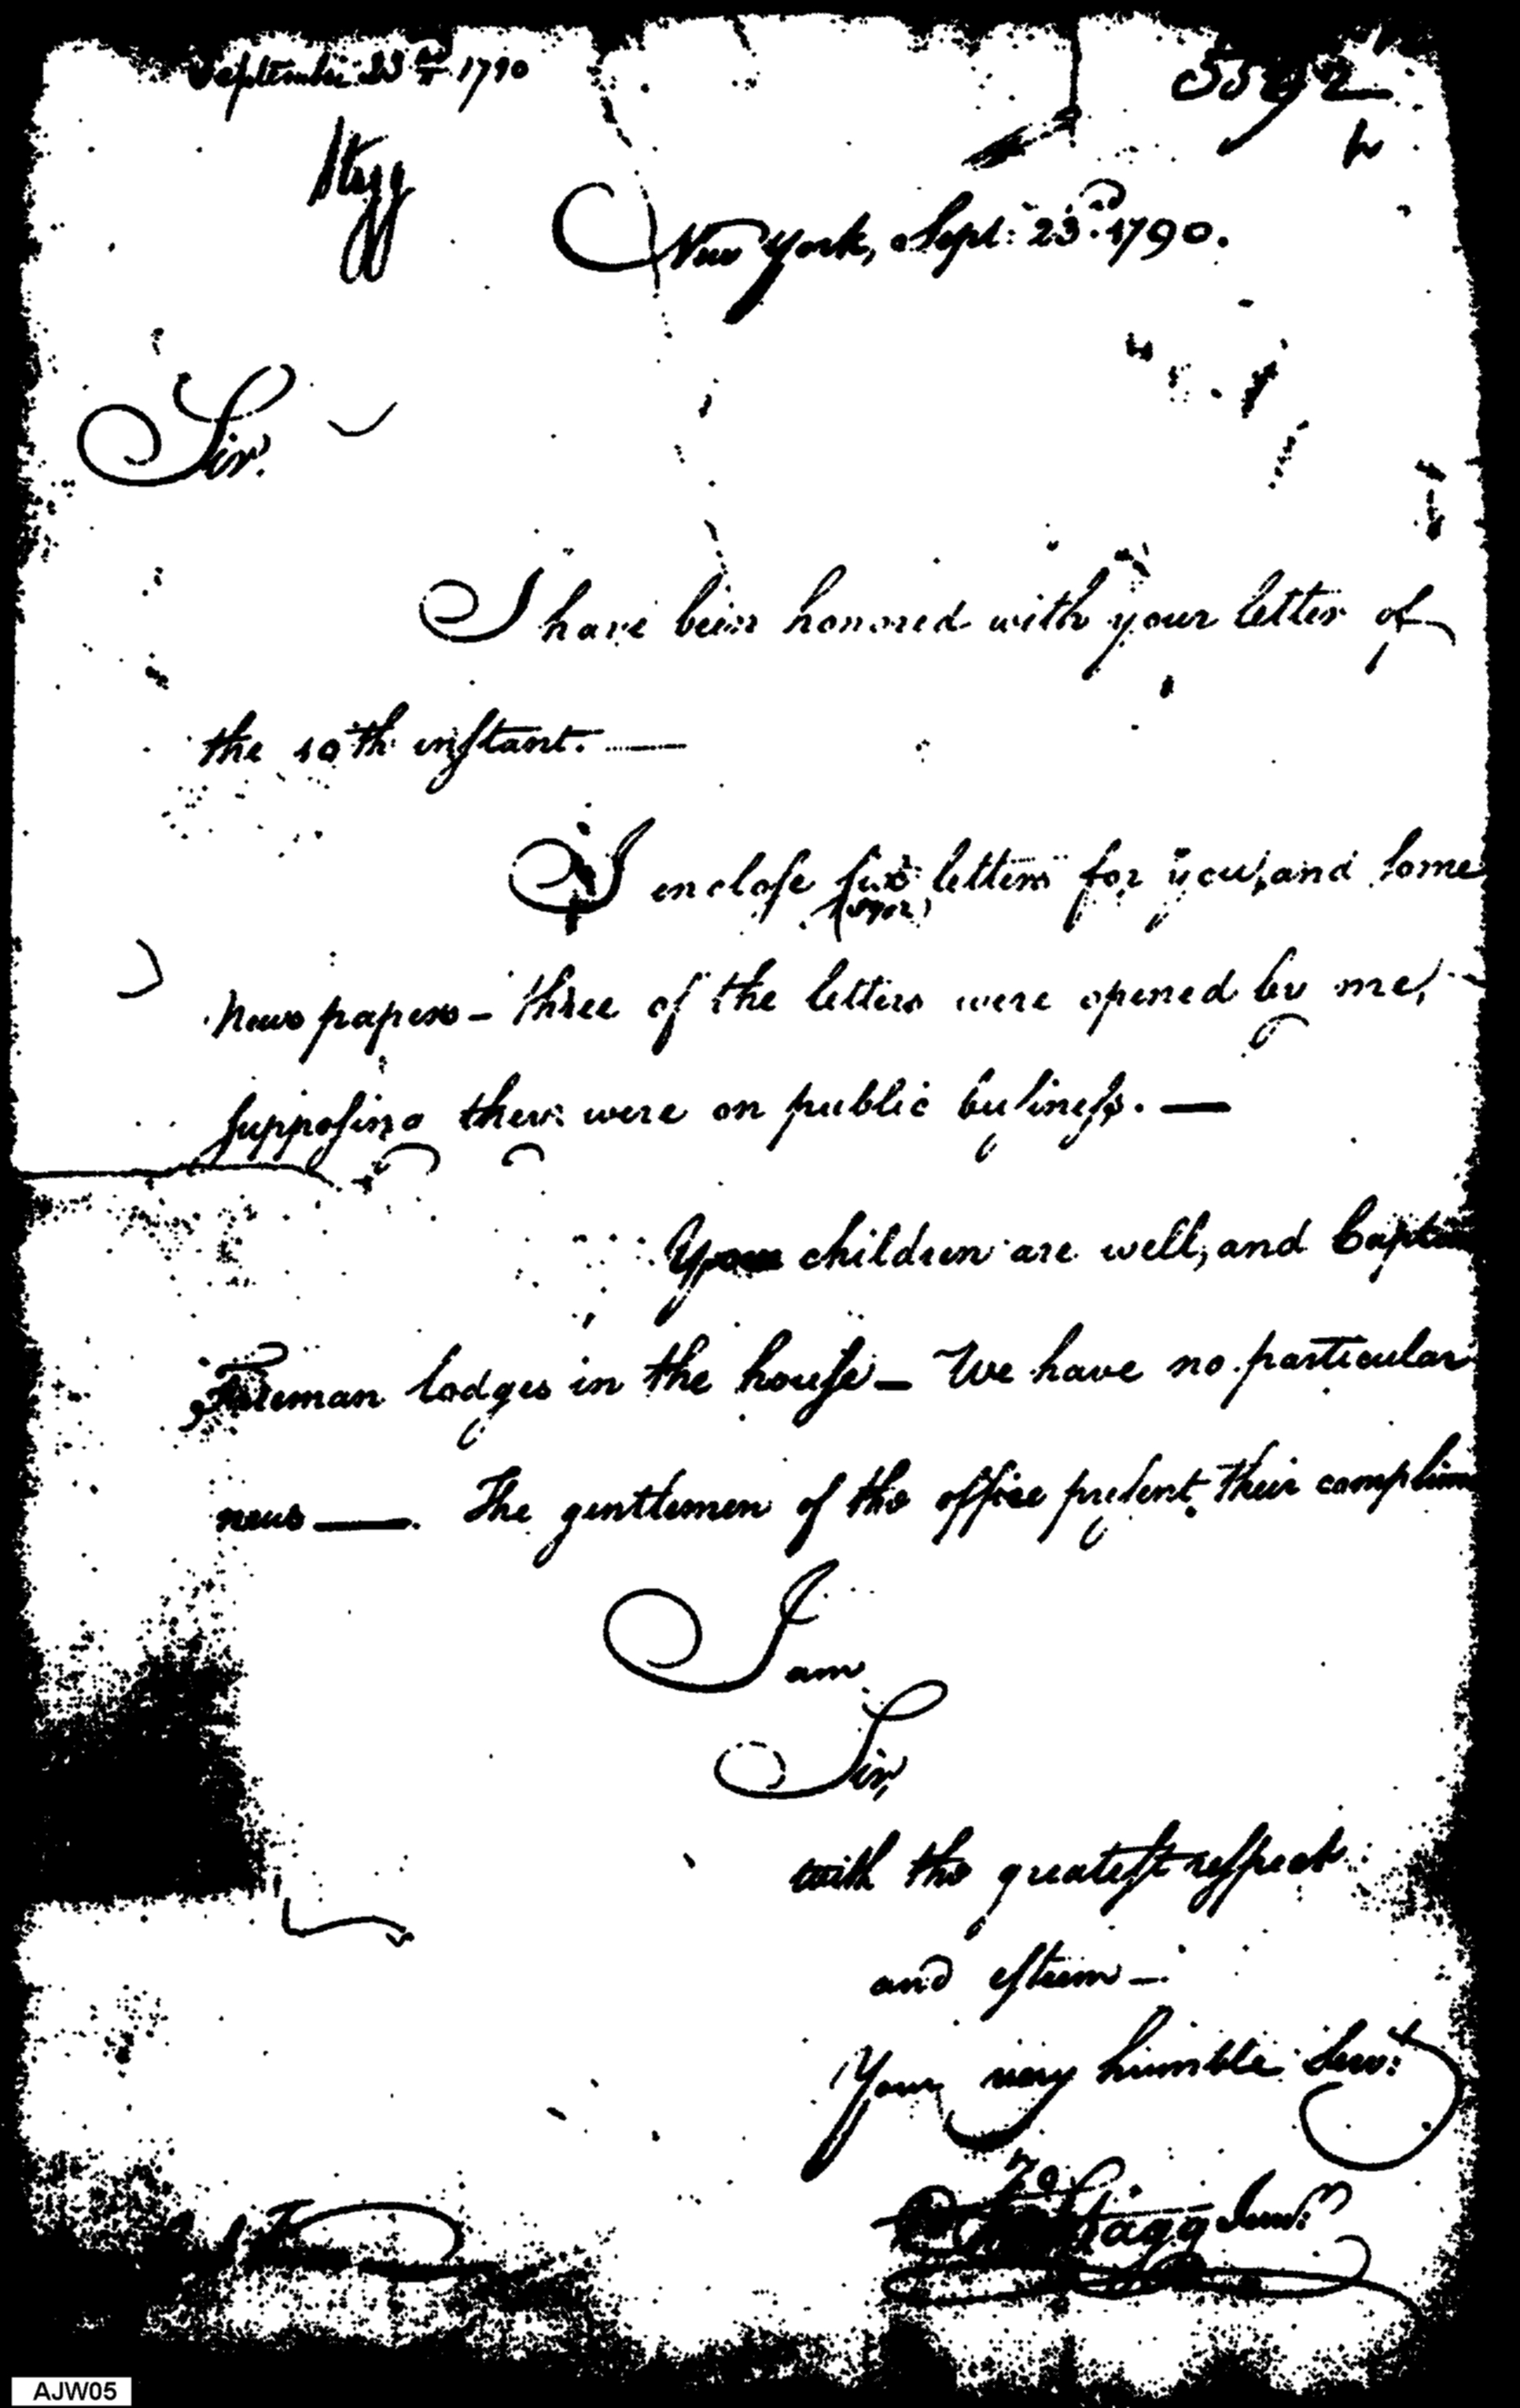 September 23d 1790
5592
Stagg
New York, Sept: 23d. 1790.
Sir.
I have been honored with your letter of
the 10th instant. —
I enclose letters for you, and some
News papers — three of the letters were opened by me,
supposing they were on public business. —
Your children are well, and Captain
Freeman lodges in the house — We have no particular
news —. The gentlemen of the office present their complim
I am
Sir,
with the greatest respect
and esteem —
Your very humble Servt
Jo Stagg Junr
AJW05